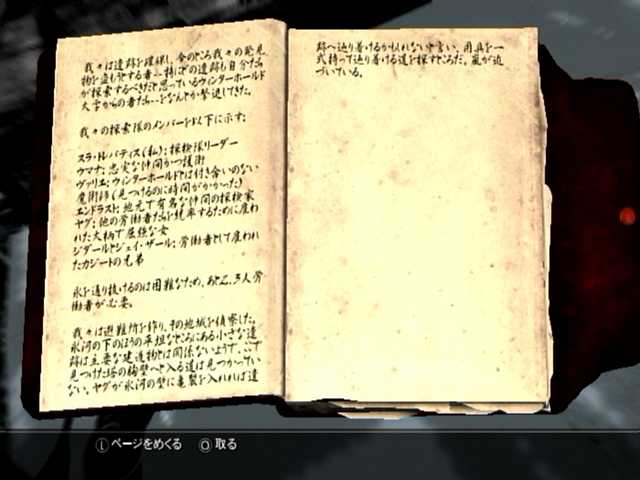 我々は遺跡を確保し、今のところ我々の発見
物を盗もうとする者…特にこの遺跡も自分たち
が探索するべきだと思っているウィンターホールド
大学からの者たち…をなんとか撃退してきた。
我々の探索隊のメンバーを以下に示す:
スラ・トレバティス(私): 探検隊リーダー
ウマナ: 忠実な仲間かつ護衛
ヴァリエ: ウィンターホールドとは付き合いのない
魔術師(見つけるのに時間がかかった)
エンドラスト: 地元で有名な仲間の探検家
ヤグ: 他の労働者たちを統率するために雇わ
れた大柄で屈強な女
ジダールとジェイ・ザール: 労働者として雇われ
たカジートの兄弟
氷を通り抜けるのは困難なため、あと2、3人労
働者が必要。
我々は避難所を作り、その地域を偵察した。
氷河の下のほうの平坦なところにある小さな遺
跡は主要な建造物とは関係ないようで、ここで
見つけた塔の胸壁へと入る道は見つかってい
ない。ヤグが氷河の壁に亀裂を入れれば遺
跡へ辿り着けるかもしれないと言い、用具を一
式持って辿り着ける道を探すところだ。嵐が近
づいている。
Ⓛ ページをめくる ○ 取る